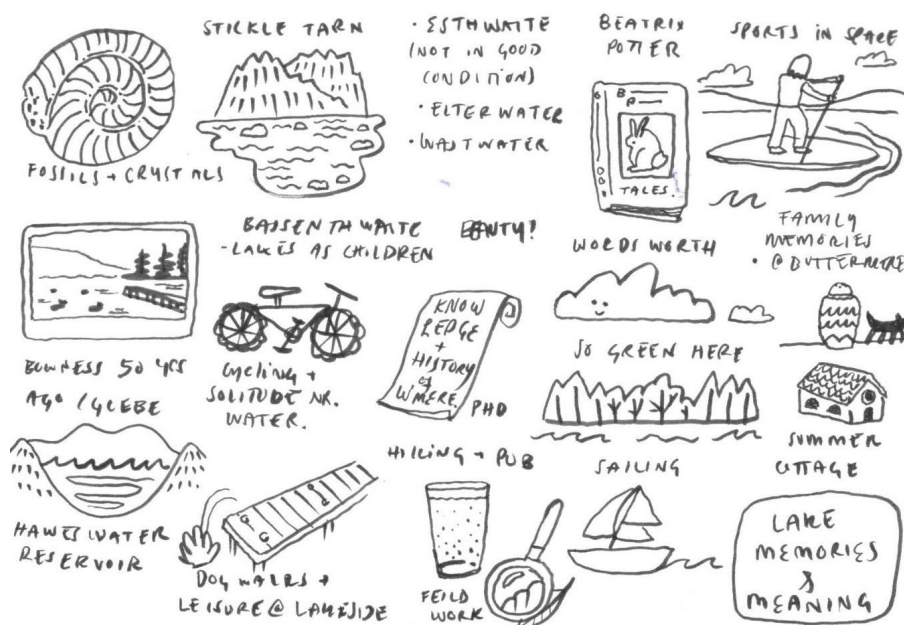 STICKLE TARN
• ESTHWAITE
(NOT IN GOOD
CONDITION)
• ELTERWATER
• WASTWATER
BEATRIX
POTTER
SPORTS IN SPACE
B
P
TALES.
FOSSILS + CRYSTALS
BASSENTHWAITE
- LAKES AS CHILDREN
WORDSWORTH
FAMILY
MEMORIES
• @ BUTTERMERE
BOWNESS 50 YRS
AGO / GLEBE
CYCLING +
SOLITUDE NR.
WATER.
KNOW
LEDGE
+
HISTORY
of
W'MERE.
PHD
SO GREEN HERE
SUMMER
COTTAGE
HAWESWATER
RESERVOIR
DOG WALKS +
LEISURE @ LAKESIDE
HIKING + PUB
FEILD
WORK
SAILING
LAKE
MEMORIES
&
MEANING